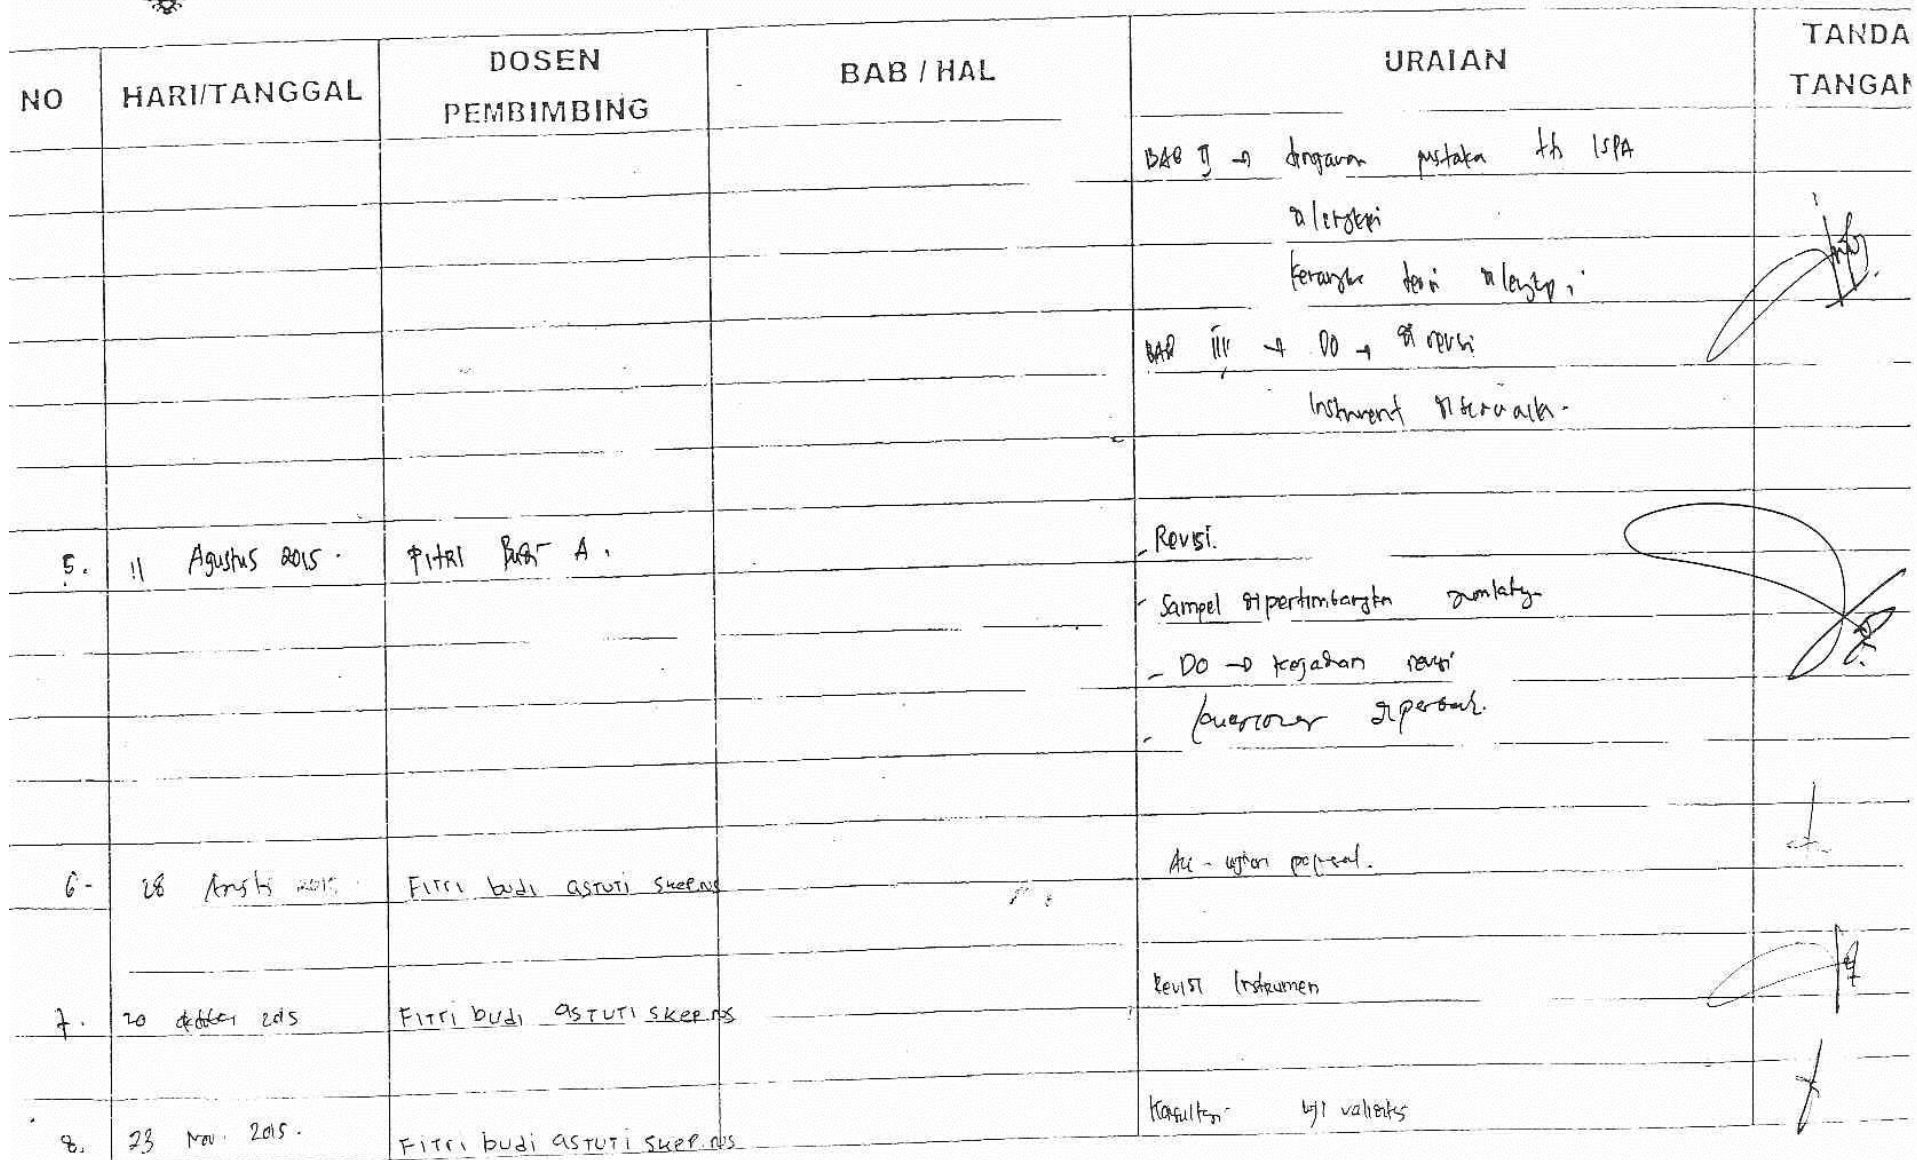 NO HARI/TANGGAL DOSEN PEMBIMBING BAB / HAL URAIAN TANDA TANGAN
BAB II → tinjauan pustaka ttg ISPA
dilengkapi
kerangka teori dilengkapi
BAB III → DO → direvisi
Instrument
5. 11 Agustus 2015. Fitri Budi A. - Revisi.
- Sampel dipertimbangkan jumlahnya
- DO → kejadian revisi
- kuesioner diperbaiki.
6- 28 2015 Fitri budi astuti Skep.ns Acc - ujian proposal.
7. 20 oktober 2015 Fitri budi astuti skep.ns Revisi Instrumen
8. 23 Nov. 2015. Fitri budi astuti skep.ns Konsultasi uji validitas